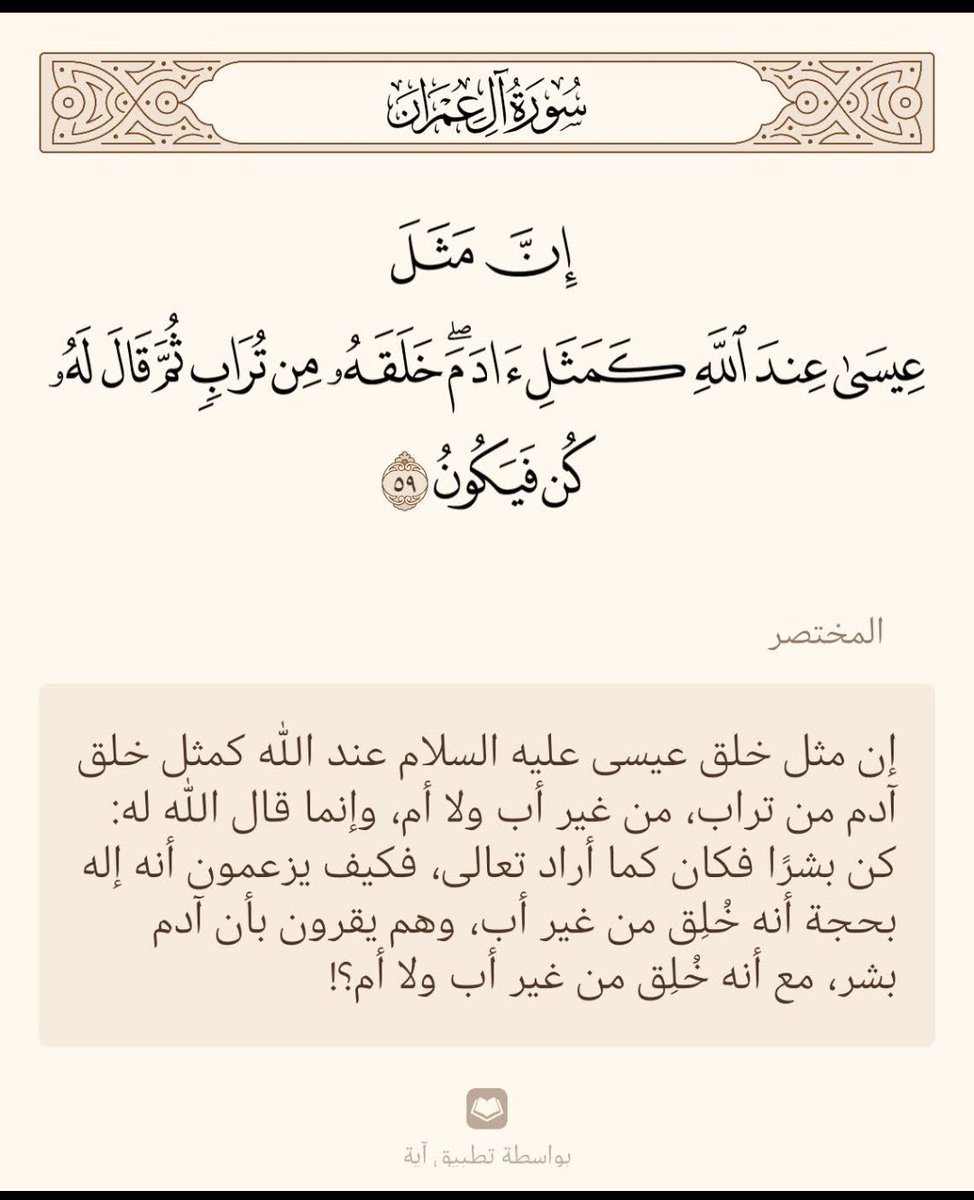 سُورَةُ آلِ عِمْرَانَ
إِنَّ مَثَلَ
عِيسَىٰ عِندَ ٱللَّهِ كَمَثَلِ ءَادَمَۖ خَلَقَهُۥ مِن تُرَابٖ ثُمَّ قَالَ لَهُۥ
كُن فَيَكُونُ ٥٩
المختصر
إن مثل خلق عيسى عليه السلام عند الله كمثل خلق
آدم من تراب، من غير أب ولا أم، وإنما قال الله له:
كن بشرًا فكان كما أراد تعالى، فكيف يزعمون أنه إله
بحجة أنه خُلِق من غير أب، وهم يقرون بأن آدم
بشر، مع أنه خُلِق من غير أب ولا أم؟!
بواسطة تطبيق آية